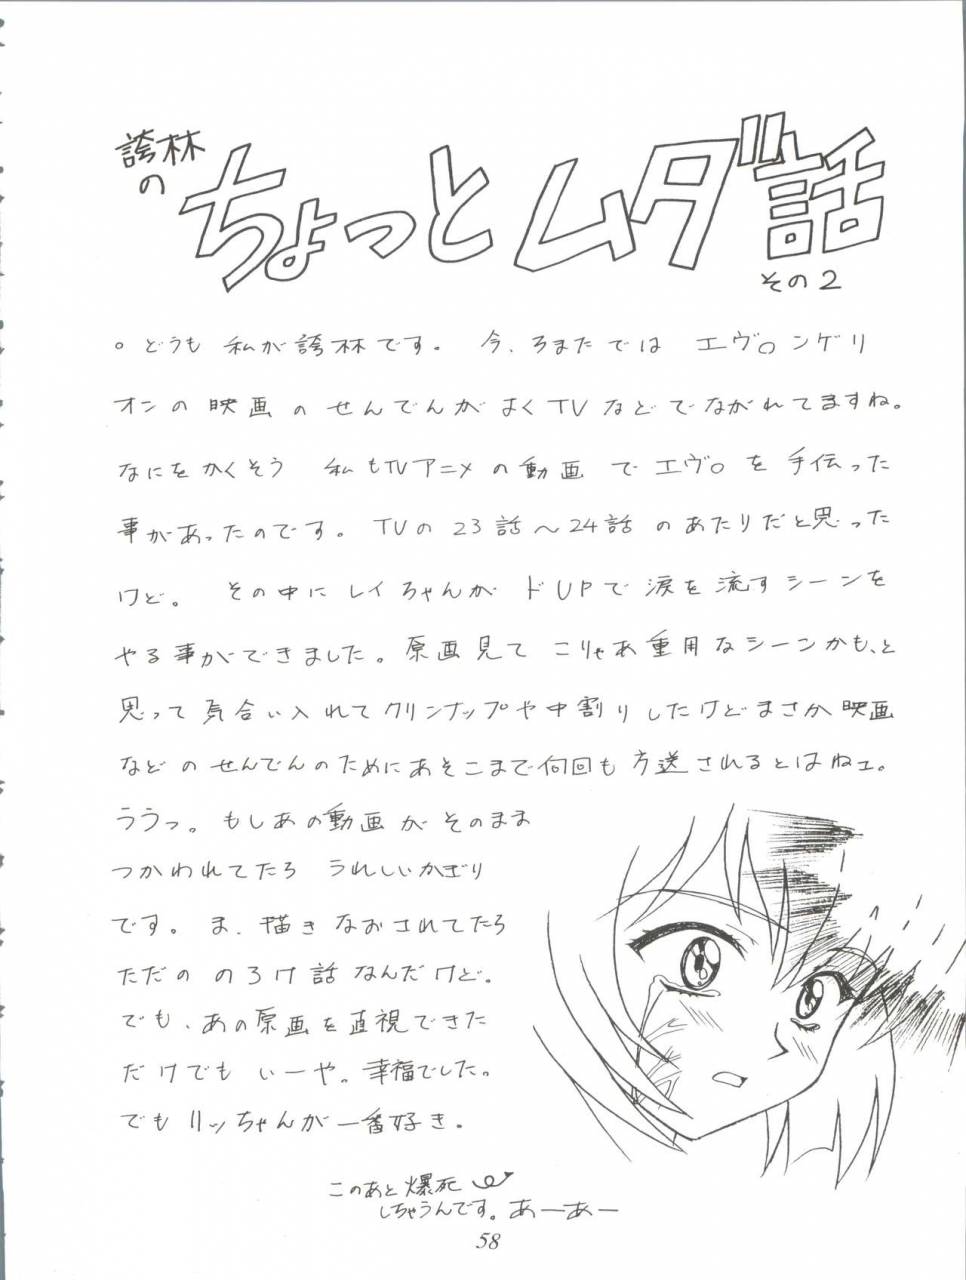 誇林
の
ちょっとムダ話
その2
。どうも 私が誇林です。 今、ろまたでは エヴ○ンゲリ
オンの映画のせんでんがよくTVなどでながれてますね。
なにをかくそう 私もTVアニメの動画でエヴ○を手伝った
事があったのです。TVの23話〜24話のあたりだと思った
けど。 その中にレイちゃんが ドUPで涙を流すシーンを
やる事ができました。原画見て こりゃあ重用なシーンかも、と
思って気合い入れてクリンナップや中割りしたけどまさか映画
などのせんでんのためにあそこまで何回も方送されるとはねェ。
ううっ。もしあの動画がそのまま
つかわれてたら うれしいかぎり
です。ま、描きなおされてたら
ただの のろけ話なんだけど。
でも、あの原画を直視できた
だけでも いーや。幸福でした。
でもリッちゃんが一番好き。
このあと爆死
しちゃうんです。あーあー
58